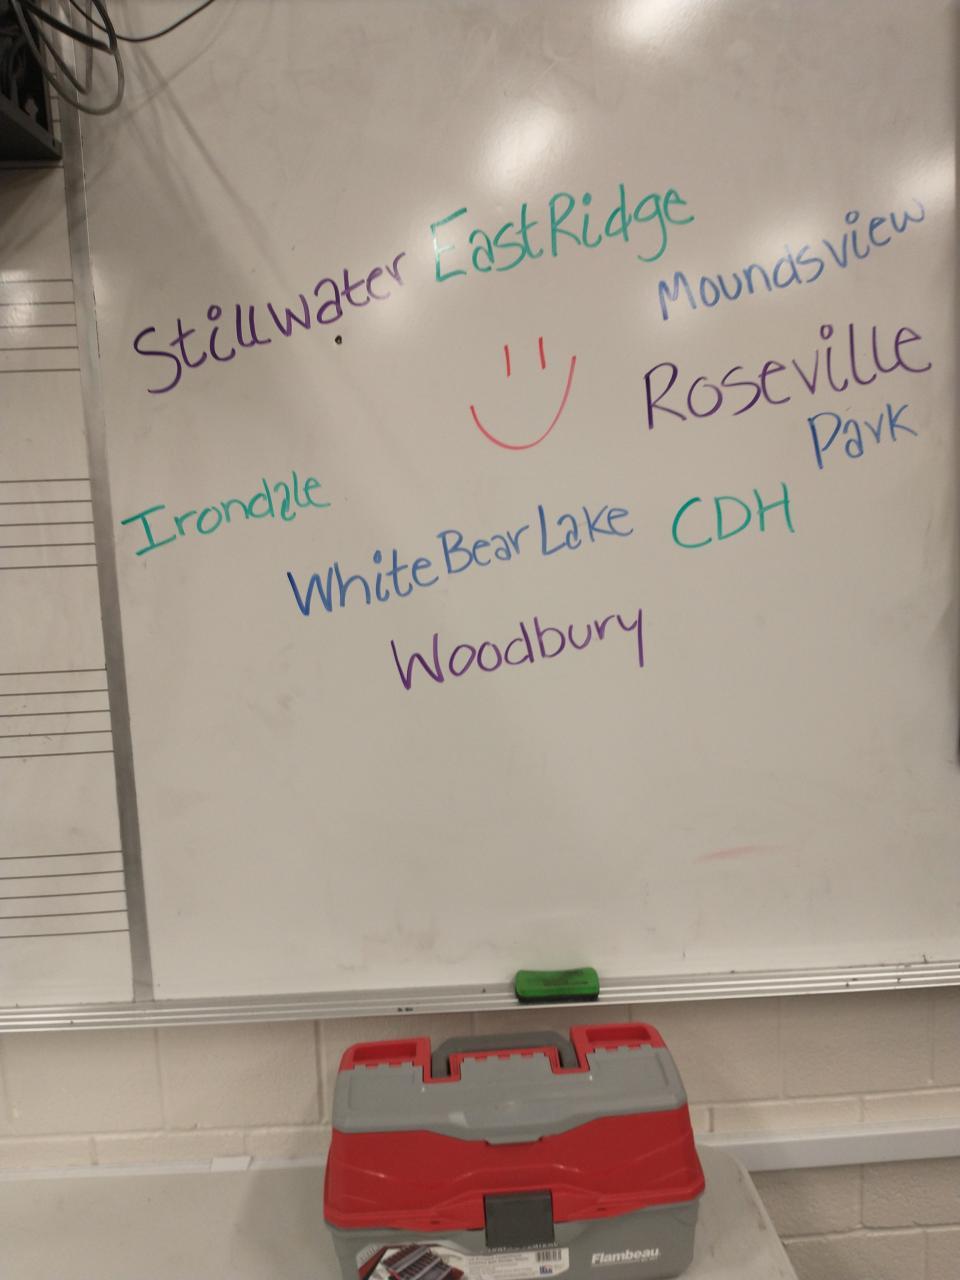 Stillwater
EastRidge
Moundsview
Roseville
Park
Irondale
White Bear Lake
CDH
Woodbury
Flambeau